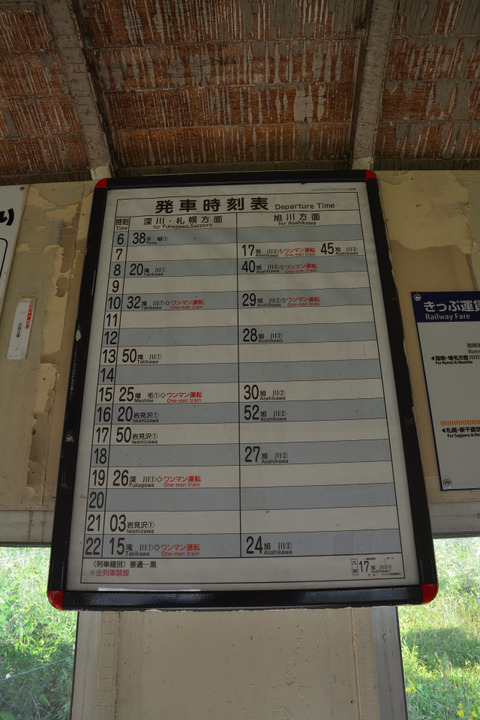 発車時刻表 Departure Time
時刻 Time 深川・札幌方面 for Fukagawa,Sapporo 旭川方面 for Asahikawa
6 38
7 17 旭 川 ワンマン運転 One-man train 45 旭 川② Asahikawa
8 20 滝 川① Takikawa 40 旭 川 ワンマン運転 One-man train
9
10 32 滝 川①◇ワンマン運転 Takikawa One-man train 29 旭 川 ワンマン運転 Asahikawa One-man train
11
12 28 旭 川② Asahikawa
13 50 滝 川① Takikawa
14
15 25 増 毛①◇ワンマン運転 Mashike One-man train 30 旭 川② Asahikawa
16 20 岩見沢① Iwamizawa 52 旭 川② Asahikawa
17 50 岩見沢① Iwamizawa
18 27 旭 川② Asahikawa
19 26 深 川①◇ワンマン運転 Fukagawa One-man train
20
21 03 岩見沢① Iwamizawa
22 15 滝 川①◇ワンマン運転 Takikawa One-man train 24 旭 川② Asahikawa
(列車種別) 普通―黒
※全列車禁煙
17
きっぷ運賃
Railway Fare